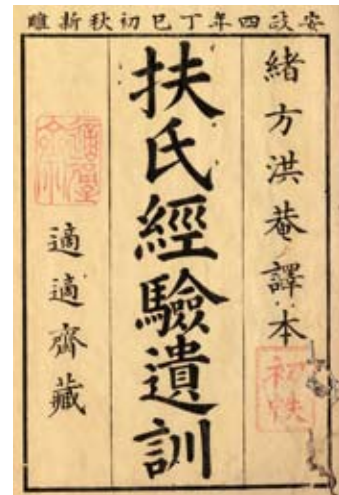 安政四年丁巳初秋新雕
緒方洪菴譯本
初帙
扶氏經驗遺訓
適適齋藏